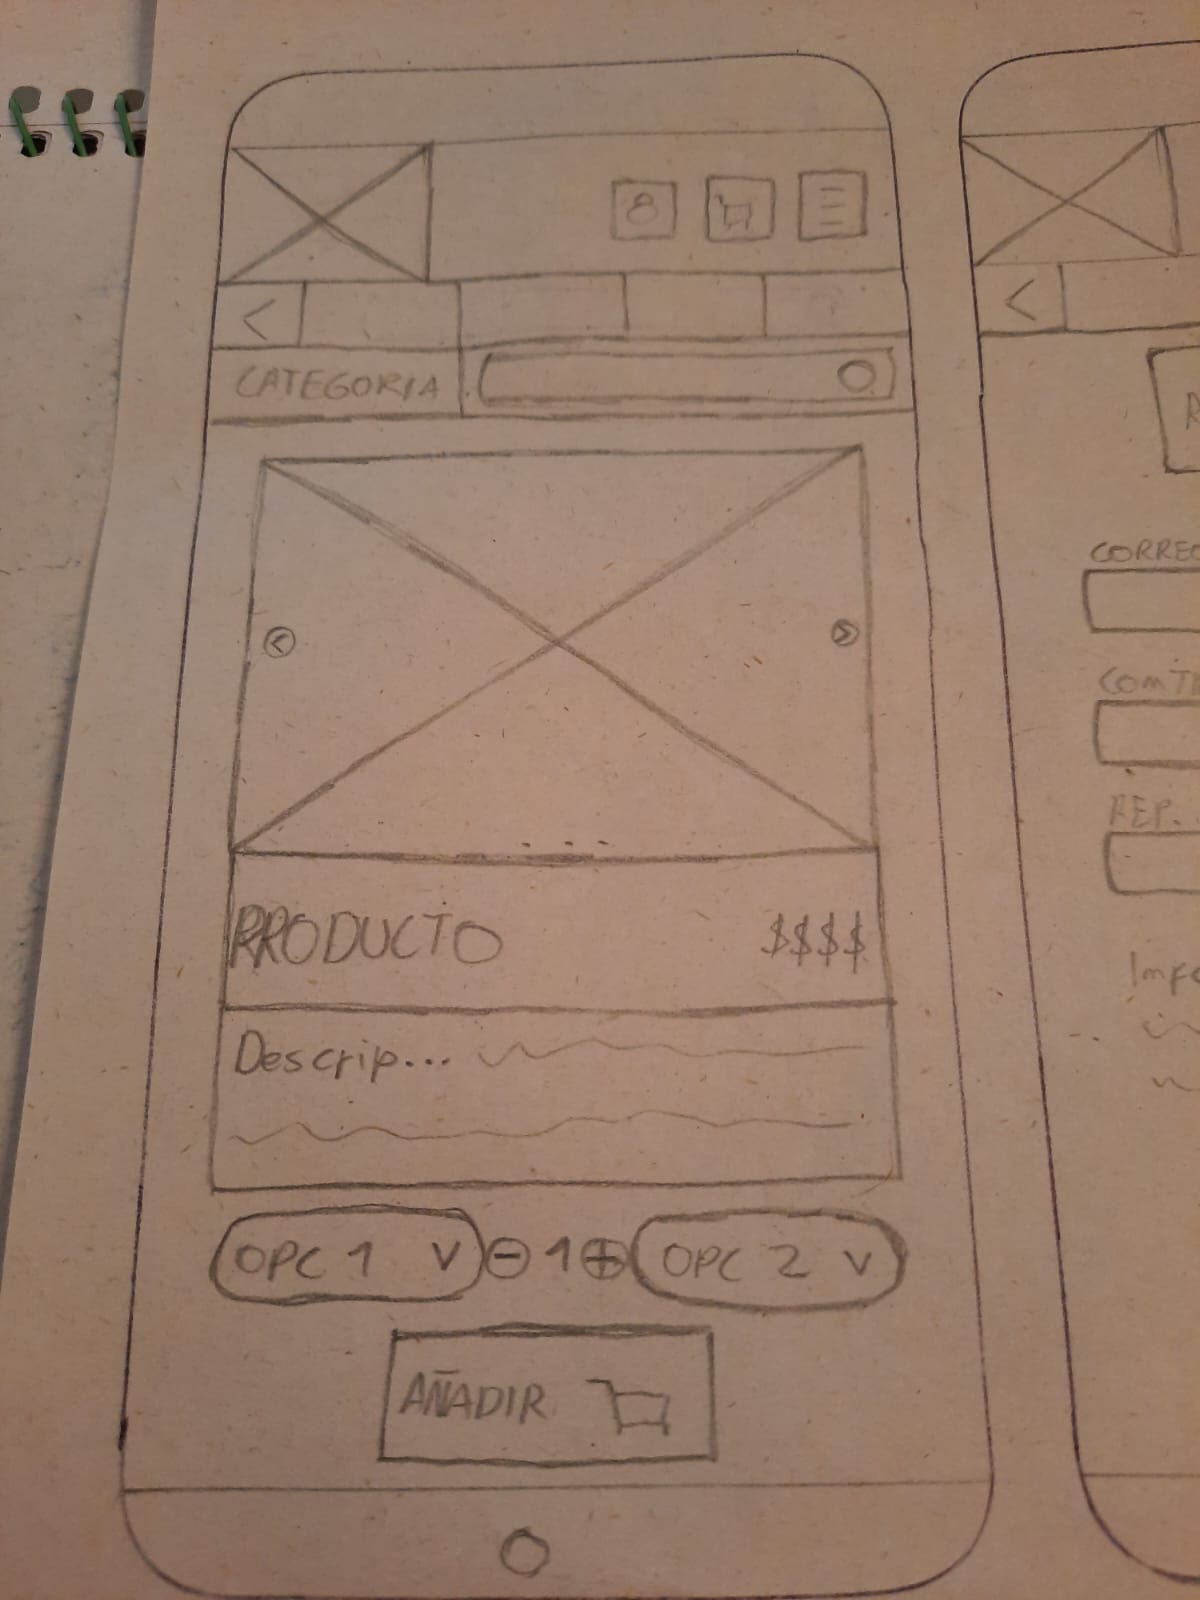 CATEGORIA
PRODUCTO $$$$
Descrip...
OPC 1 V 1 OPC 2 V
AÑADIR
CORREO
REP.